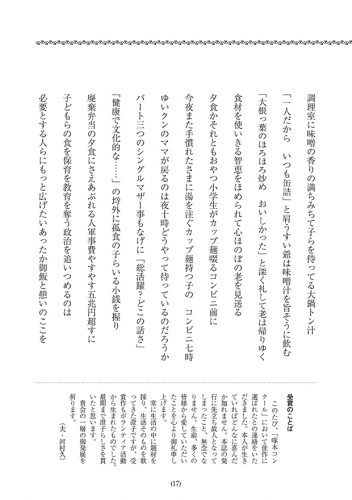 調理室に味噌の香りの満ちみちて子らを待ってる大鍋トン汁
「一人だから　いつも缶詰」と肩うすい爺は味噌汁を旨そうに飲む
「大根っ葉のほろほろ炒め　おいしかった」と深く礼して老は帰りゆく
食材を使いきる智恵をほめられて心ほのぼの老を見送る
夕食かそれともおやつ小学生がカップ麺啜るコンビニ前に
今夜また手慣れたさまに湯を注ぐカップ麺持つ子の　コンビニ七時
ゆいクンのママが戻るのは夜十時どうやって待っているのだろうか
パート三つのシングルマザー事もなげに「総活躍？どこの話さ」
「健康で文化的な……」の埒外に孤食の子らいる小銭を握り
廃棄弁当の夕食にさえあぶれる人軍事費やすやす五兆円超すに
子どもらの食を保育を教育を奪う政治を追いつめるのは
必要とする人らにもっと広げたいあったか御飯と想いのここを
受賞のことば
このたび、「啄木コン
クール」において佳作に
選ばれたとの連絡をいた
だきました。本人が生き
ていればどんなに喜んだ
か知れません。本誌の発
行に先立ち故人となって
しまったこと、無念でな
りません。生前、多くの
皆様から愛していただい
たことを心より御礼申し
上げます。
常に生活の中に題材を
採り、生活そのものを歌
ってきた澄子ですが、受
賞作もボランティア活動
から生まれたものでした。
最期まで澄子らしさを貫
いたと思います。
貴会の一層の御発展を
祈ります。
（夫・河村久）
(17)